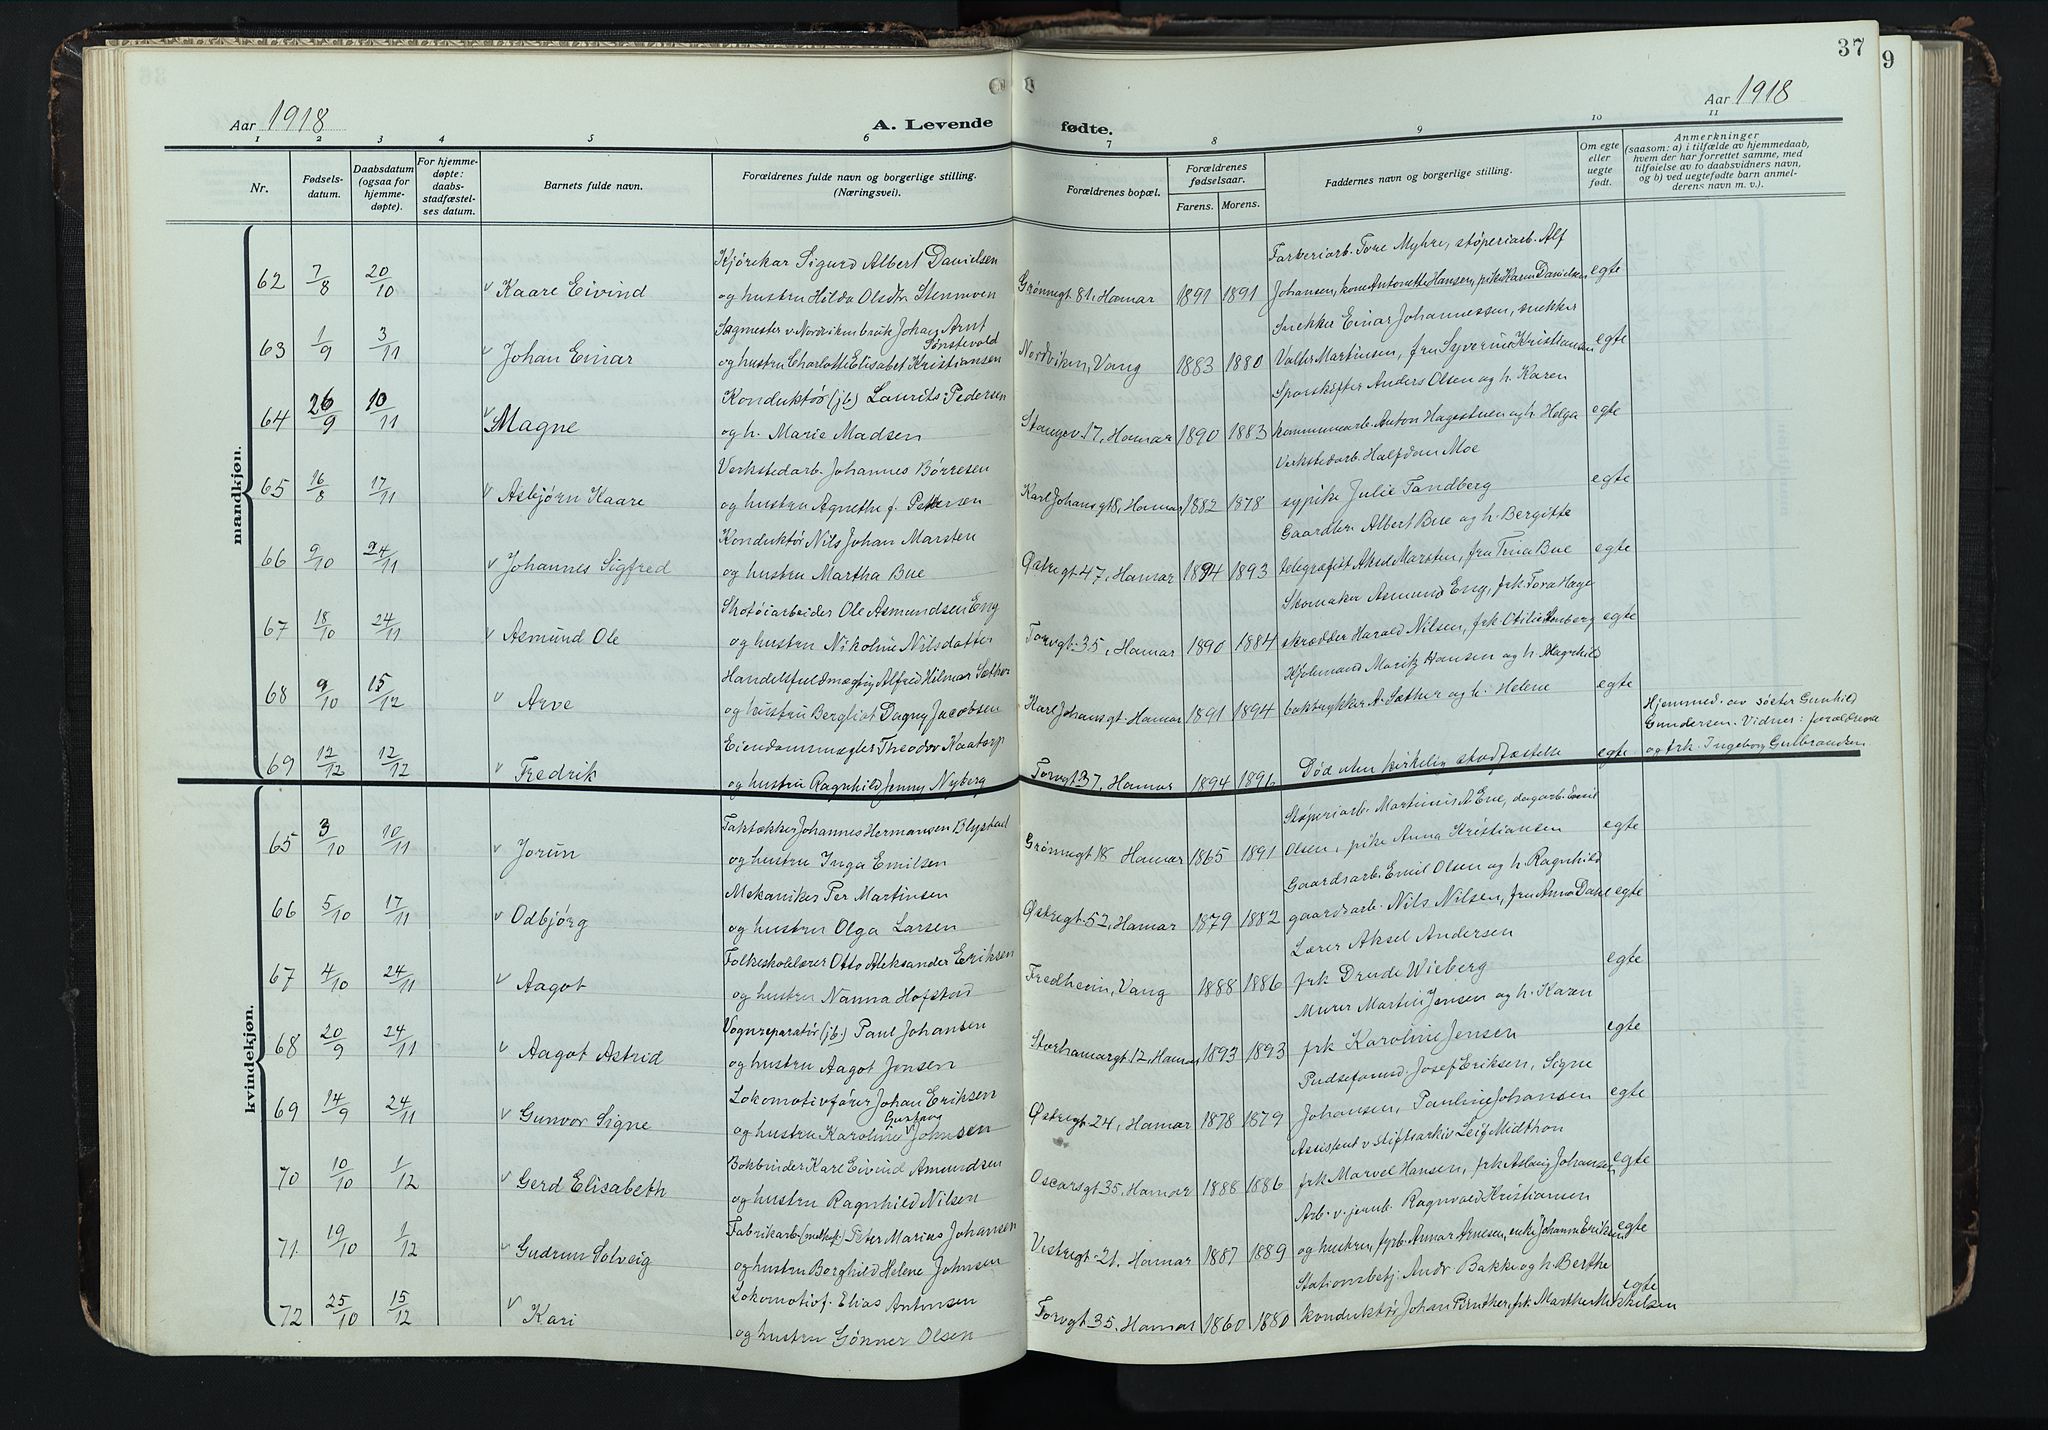 37
9
Aar 1918
A. Levende
fødte.
Aar 1918
1 2 3 4 5 6 7 8 9 10 11
Nr.
Fødsels-
datum.
Daabsdatum
(ogsaa for
hjemme-
døpte).
For hjemme-
døpte:
daabs-
stadfæstel-
ses datum.
Barnets fulde navn.
Forældrenes fulde navn og borgerlige stilling.
(Næringsvei).
Forældrenes bopæl.
Forældrenes
fødselsaar.
Farens. Morens.
Faddernes navn og borgerlige stilling.
Om egte
eller
uegte
født.
Anmerkninger
(saasom: a) i tilfælde av hjemmedaab,
hvem der har forrettet samme, med
tilføielse av to daabsvidners navn,
og b) ved uegtefødte barn anmel-
derens navn m. v.).
mandkjøn.
Kjørekar Sigurd Albert Danielsen Farveriarb. Tore Myhre, støperiarb. Alf
62 7/8 20/10 v Kaare Eivind og hustru Hilda Olsdtr. Stenmoen Grønnegt 81, Hamar 1891 1891 Johansen, kone Antonette Hansen, pike Karen Danielsen egte
Sagmester v. Nordviken bruk Johan Arnt Snekker Einar Johannessen, snekker
Sønstevold
63 1/9 3/11 v Johan Einar og hustru Charlotte Elisabet Kristiansen Nordviken, Vang 1883 1880 Valter Martinsen, fru Syverine Kristiansen egte
Konduktør (jb.) Laurits Pedersen Sporskifter Anders Olsen og h. Karen
64 26/9 10/11 v Magne og h. Marie Madsen Stangev. 17, Hamar 1890 1883 kommunearb. Anton Hagestuen og h. Helga egte
Verkstedarb. Johannes Børresen Verkstedarb. Halfdan Moe
65 16/8 17/11 v Asbjørn Kaare og hustru Agnethe f. Pettersen Karl Johansgt 8, Hamar 1882 1878 sypike Julie Tandberg egte
Konduktør Nils Johan Marsten Gaardbr. Albert Bue og h. Bergitte
66 9/10 24/11 v Johannes Sigfred og hustru Martha Bue Østregt 47, Hamar 1894 1893 telegrafist Aksel Marsten, fru Trina Bue egte
Skotøiarbeider Ole Asmundsen Eng Skomaker Asmund Eng, frk. Tora Hage
67 18/10 24/11 v Asmund Ole og hustru Nikoline Nilsdatter Torvgt. 35, Hamar 1890 1884 skrædder Harald Nilsen, frk. Otilie Stenberg egte
Handelsfuldmægtig Alfred Hilmar Sæther Hjulmand Moritz Hansen og h. Ragnhild
68 9/10 15/12 v Arve og hustru Bergliot Dagny Jacobsen Karl Johansgt. Hamar 1891 1894 boktrykker A. Sæther og h. Helene egte
Hjemmed. av søster Gunhild
Gundersen. Vidner: forældrene
og frk. Ingeborg Gulbrandsen
Eiendomsmægler Theodor Kaatorp
69 12/12 12/12 v Fredrik og hustru Ragnhild Jenny Nyberg Torvgt 37, Hamar 1894 1896 Død uten kirkelig stadfæstelse egte
kvindekjøn.
Taktækker Johannes Hermansen Blystad Støperiarb. Martinius A. Ene, dagarb. Emil
65 3/10 10/11 v Jorun og hustru Inga Emilsen Grønnegt 18 Hamar 1865 1891 Olsen, pike Anna Kristiansen egte
Mekaniker Per Martinsen Gaardsarb. Emil Olsen og h. Ragnhild
66 5/10 17/11 v Odbjørg og hustru Olga Larsen Østregt. 52, Hamar 1879 1882 gaardsarb. Nils Nilsen, fru Anna Dahl egte
Folkeskolelærer Otto Aleksander Eriksen Lærer Aksel Andersen
67 4/10 24/11 v Aagot og hustru Nanna Hofstad Fredheim, Vang 1888 1886 frk Drude Wieberg egte
Vognreparatør (jb.) Paul Johansen Murer Martin Jensen og h. Karen
68 20/9 24/11 v Aagot Astrid og hustru Aagot Jensen Storhamargt 12, Hamar 1893 1893 frk Karoline Jensen egte
Lokomotivfører Johan Eriksen Pudseformd. Josef Eriksen, Signe
Gustava
69 14/9 24/11 v Gunvor Signe og hustru Karoline Johnsen Østregt 24, Hamar 1878 1879 Johansen, Pauline Johansen egte
Bokbinder Karl Eivind Amundsen Assistent v. stiftsarkiv Leif Midthon
70 10/10 1/12 v Gerd Elisabeth og hustru Ragnhild Nilsen Oscarsgt 35, Hamar 1888 1886 frk Marvel Hansen, frk Aslaug Johansen egte
Fabrikarb. (melkef.) Peter Marius Johansen Arb. v. jernb. Ragnvald Kristiansen
71 19/10 1/12 v Gudrun Solveig og hustru Borghild Helene Johnsen Vestregt. 21. Hamar 1887 1889 og hustru, fyrb. Annar Arnesen, enke Johanne Eriksen egte
Lokomotivf. Elias Antonsen Stationsbetj. Andr. Bakke og h. Berthe
72 25/10 15/12 v Kari og hustru Gønner Olsen Torvgt 35. Hamar 1860 1880 konduktør Johan Bruther, frk. Marthe Mikkelsen egte